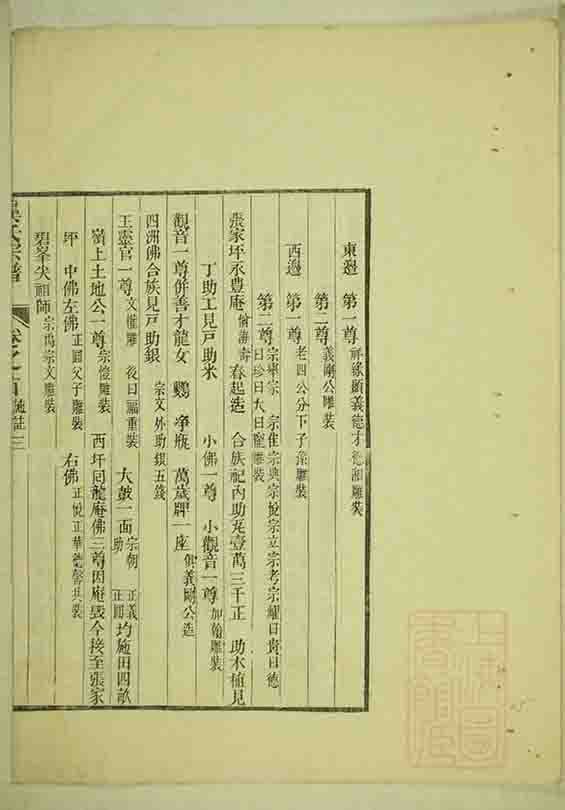 東邊 第一尊 祥緣顯義德才
第二尊 義剛公雕裝
西邊 第一尊 老四公分下子孫雕裝
第二尊 宗寧宗 宗佳宗典宗悅宗立宗考宗耀日貴日德
日珍日大日 雕裝
張家坪永豐庵 春起造 合族祀內助 壹萬三千正 助木植見
丁助工見戸助米 小佛一尊 小觀音一尊 加翰雕裝
觀音一尊併善才龍女 鸚 淨瓶 萬歲牌一座 俱義剛公造
四洲佛合族見戸助銀 宗文外助銀五錢
王靈官一尊 文 雕 後日 重裝 大鼓一面 宗朝助 正義正圓 均施田四畝
嶺上土地公一尊 宗 雕裝 西坪回龍庵佛三尊因庵毀今接至張家
坪 中佛左佛 正圓父子雕裝 右佛 正悅正華德馨共裝
碧峯尖祖師 宗禹宗文雕裝
氏宗譜 卷之 三
上海圖書館藏